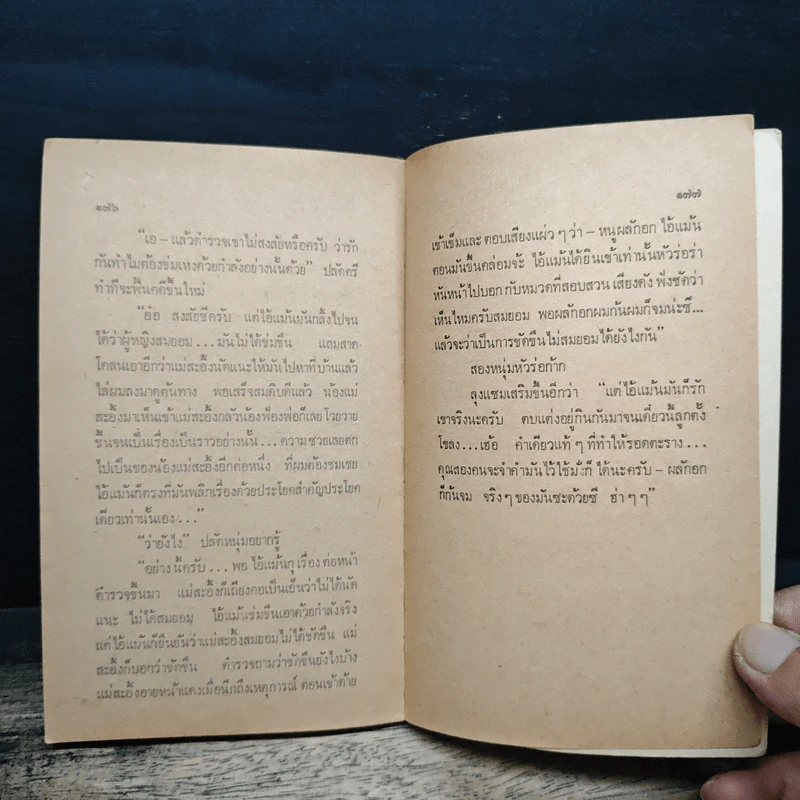 ๑๗๖
“เอ – แล้วตำรวจเขาไม่สงสัยหรือครับ ว่ารัก
กันทำไมต้องข่มเหงด้วยกำลังอย่างนั้นด้วย” ปลัดตรี
ทำทีจะฟื้นคดีขึ้นใหม่
“อ๋อ สงสัยซีครับ แต่ไอ้แม้นมันกลิ้งไปจน
ได้ว่าผู้หญิงสมยอม...มันไม่ได้ข่มขืน แถมสาด
โคลนเอาอีกว่าแม่สะอิ้งนัดแนะให้มันไปหาที่บ้านแล้ว
ไล่ผมลงมาดูต้นทาง พอเสร็จสมดิบดีแล้ว น้องแม่
สะอิ้งมาเห็นเข้าแม่สะอิ้งกลัวน้องฟ้องพ่อก็เลย โวยวาย
ขึ้นจนเป็นเรื่องเป็นราวอย่างนั้น...ความซวยเลยตก
ไปเป็นของน้องแม่สะอิ้งอีกต่อหนึ่ง ที่ผมต้องชมเชย
ไอ้แม้นก็ตรงที่มันพลิกเรื่องด้วยประโยคสำคัญประโยค
เดียวเท่านั้นเอง...”
“ว่ายังไง” ปลัดหนุ่มอยากรู้
“อย่างนี้ครับ...พอ ไอ้แม้นกุ เรื่อง ต่อหน้า
ตำรวจขึ้นมา แม่สะอิ้งก็เถียงคอเป็นเอ็นว่าไม่ได้นัด
แนะ ไม่ได้สมยอม ไอ้แม้นข่มขืนเอาด้วยกำลังจริง
แต่ไอ้แม้นก็ยืนยันว่าแม่สะอิ้งสมยอมไม่ได้ขัดขืน แม่
สะอิ้งก็บอกว่าขัดขืน ตำรวจถามว่าขัดขืนยังไงบ้าง
แม่สะอิ้งอายหน้าแดงเมื่อนึกถึงเหตุการณ์ ตอนเข้าด้าย
๑๗๗
เข้าเข็มและ ตอบเสียงแผ่ว ๆ ว่า – หนูผลักอก ไอ้แม้น
ตอนมันขึ้นคล่อมจ้ะ ไอ้แม้นได้ยินเข้าเท่านั้นหัวร่อร่า
หันหน้าไปบอก กับหมวดที่สอบสวน เสียงดัง ฟังชัดว่า
เห็นไหมครับสมยอม พอผลักอกผมก้นผมก็จมน่ะซี...
แล้วจะว่าเป็นการขัดขืนไม่สมยอมได้ยังไงกัน”
สองหนุ่มหัวร่อก๊าก
ลุงแซมเสริมขึ้นอีกว่า “แต่ไอ้แม้นมันก็รัก
เขาจริงนะครับ ตบแต่งอยู่กินกันมาจนเดี๋ยวนี้ลูกตั้ง
โขลง...เฮ้อ คำเดียวแท้ ๆ ที่ทำให้รอดตะราง...
คุณสองคนจะจำคำมันไว้ใช้มั่งก็ ได้นะครับ – ผลักอก
ก็ก้นจม จริง ๆ ของมันซะด้วยซี ฮ่า ๆ ๆ”